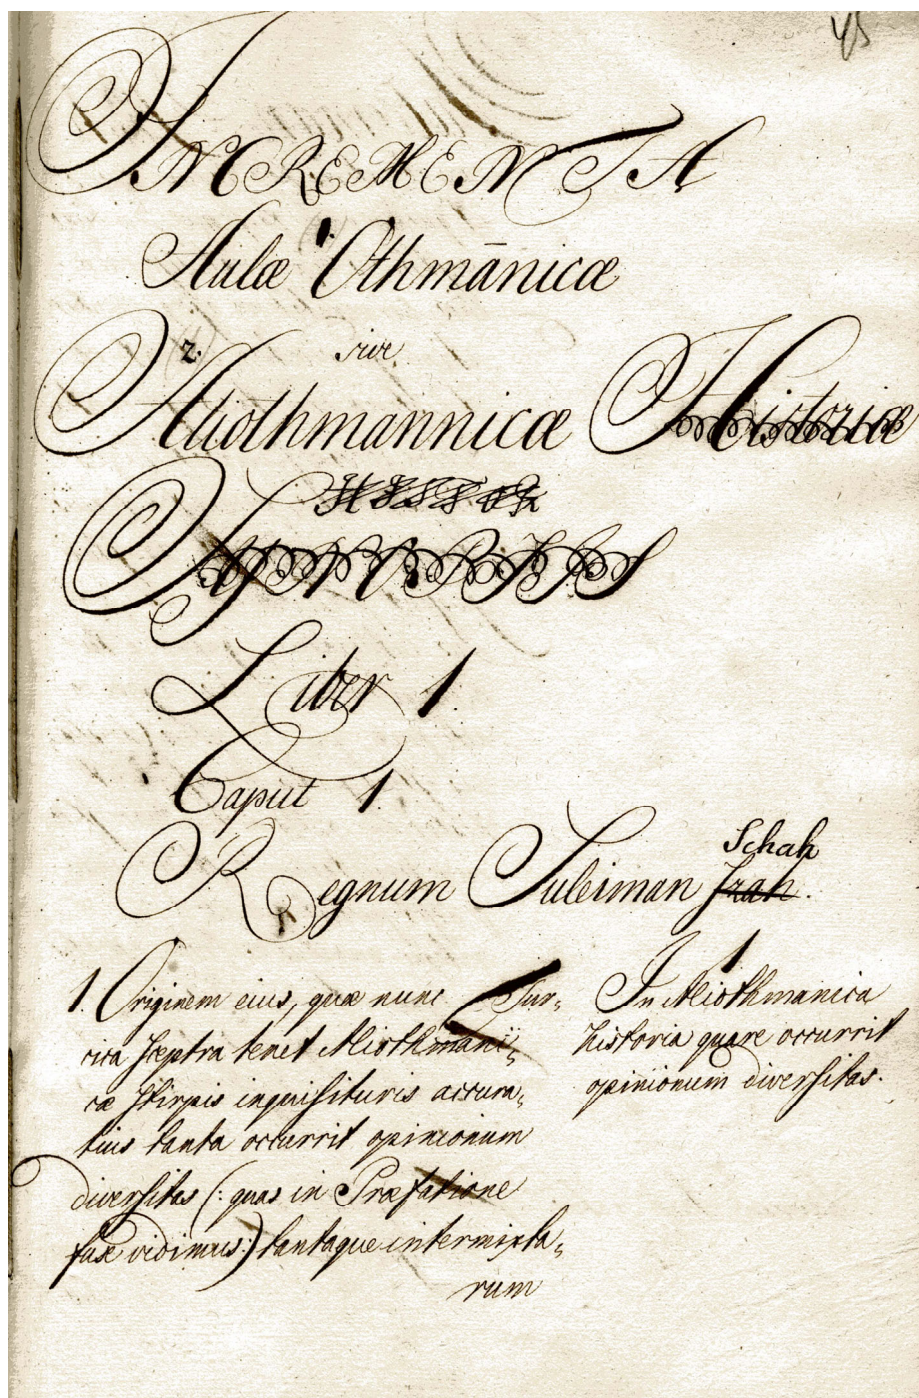 45
INCREMENTA
1.
Aulæ Othmānicæ
2. sive
Aliothmannicæ Historiæ
Liber 1.
Caput 1.
Schah
Regnum Suleiman
1. Originem eius, quæ nunc Tur„
cica sceptra tenet Aliothmani„
cæ stirpis inquisituris accura„
tius tanta occurrit opinionum
diversitas (: quas in Præfatione
fuse vidimus:) tantaque intermixta„
rum
1
In Aliothmanica
historia quare occurrit
opinionum diversitas.